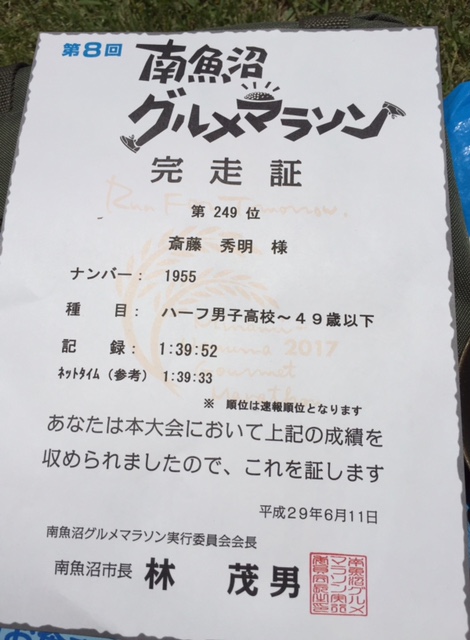 第8回 南魚沼
グルメマラソン
完走証
Run For Tomorrow.
第 249 位
斎藤 秀明 様
ナンバー： 1955
種 目： ハーフ男子高校～４９歳以下
Minami-
Uonuma 2017
Gourmet
Marathon
記 録： 1:39:52
ネットタイム（参考） 1:39:33
※ 順位は速報順位となります
あなたは本大会において上記の成績を
収められましたので、これを証します
平成29年6月11日
南魚沼グルメマラソン実行委員会会長
南魚沼市長 林 茂男
南魚沼グルメ
マラソン実行